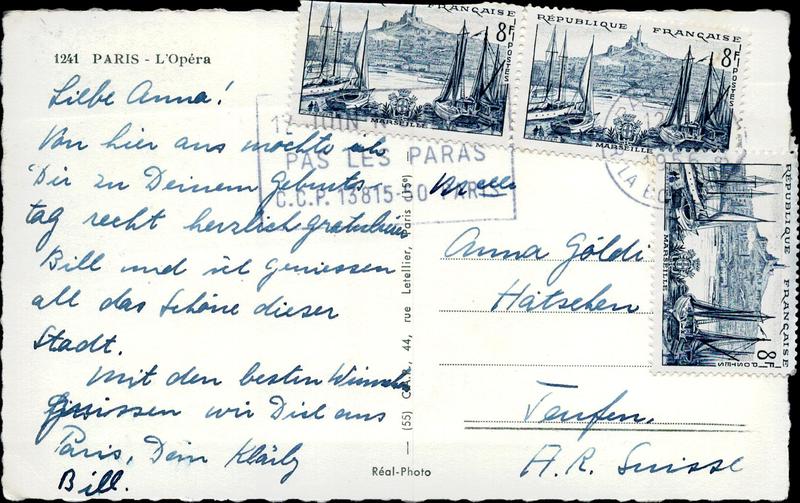 1241 PARIS - L'Opéra
Liebe Anna!
Von hier aus möchte ich
Dir zu Deinem Geburts-
tag recht herzlich gratulieren
Bill und ich geniessen
all das Schöne dieser
Stadt.
Mit den besten Wünschen
grüssen wir Dich aus
Paris, Dein Klärly
Bill.
Réal-Photo
— (55) C.A.P., 44, rue Letellier, Paris (15e) —
PAS LES PARAS
C.C.P. 13815-60 PARIS
RÉPUBLIQUE FRANÇAISE
8F
POSTES
MARSEILLE
RÉPUBLIQUE FRANÇAISE
8F
POSTES
MARSEILLE
1956
RÉPUBLIQUE FRANÇAISE
8F
POSTES
MARSEILLE
Melle
Anna Göldi
Hätschen
Teufen,
A.R. Suisse